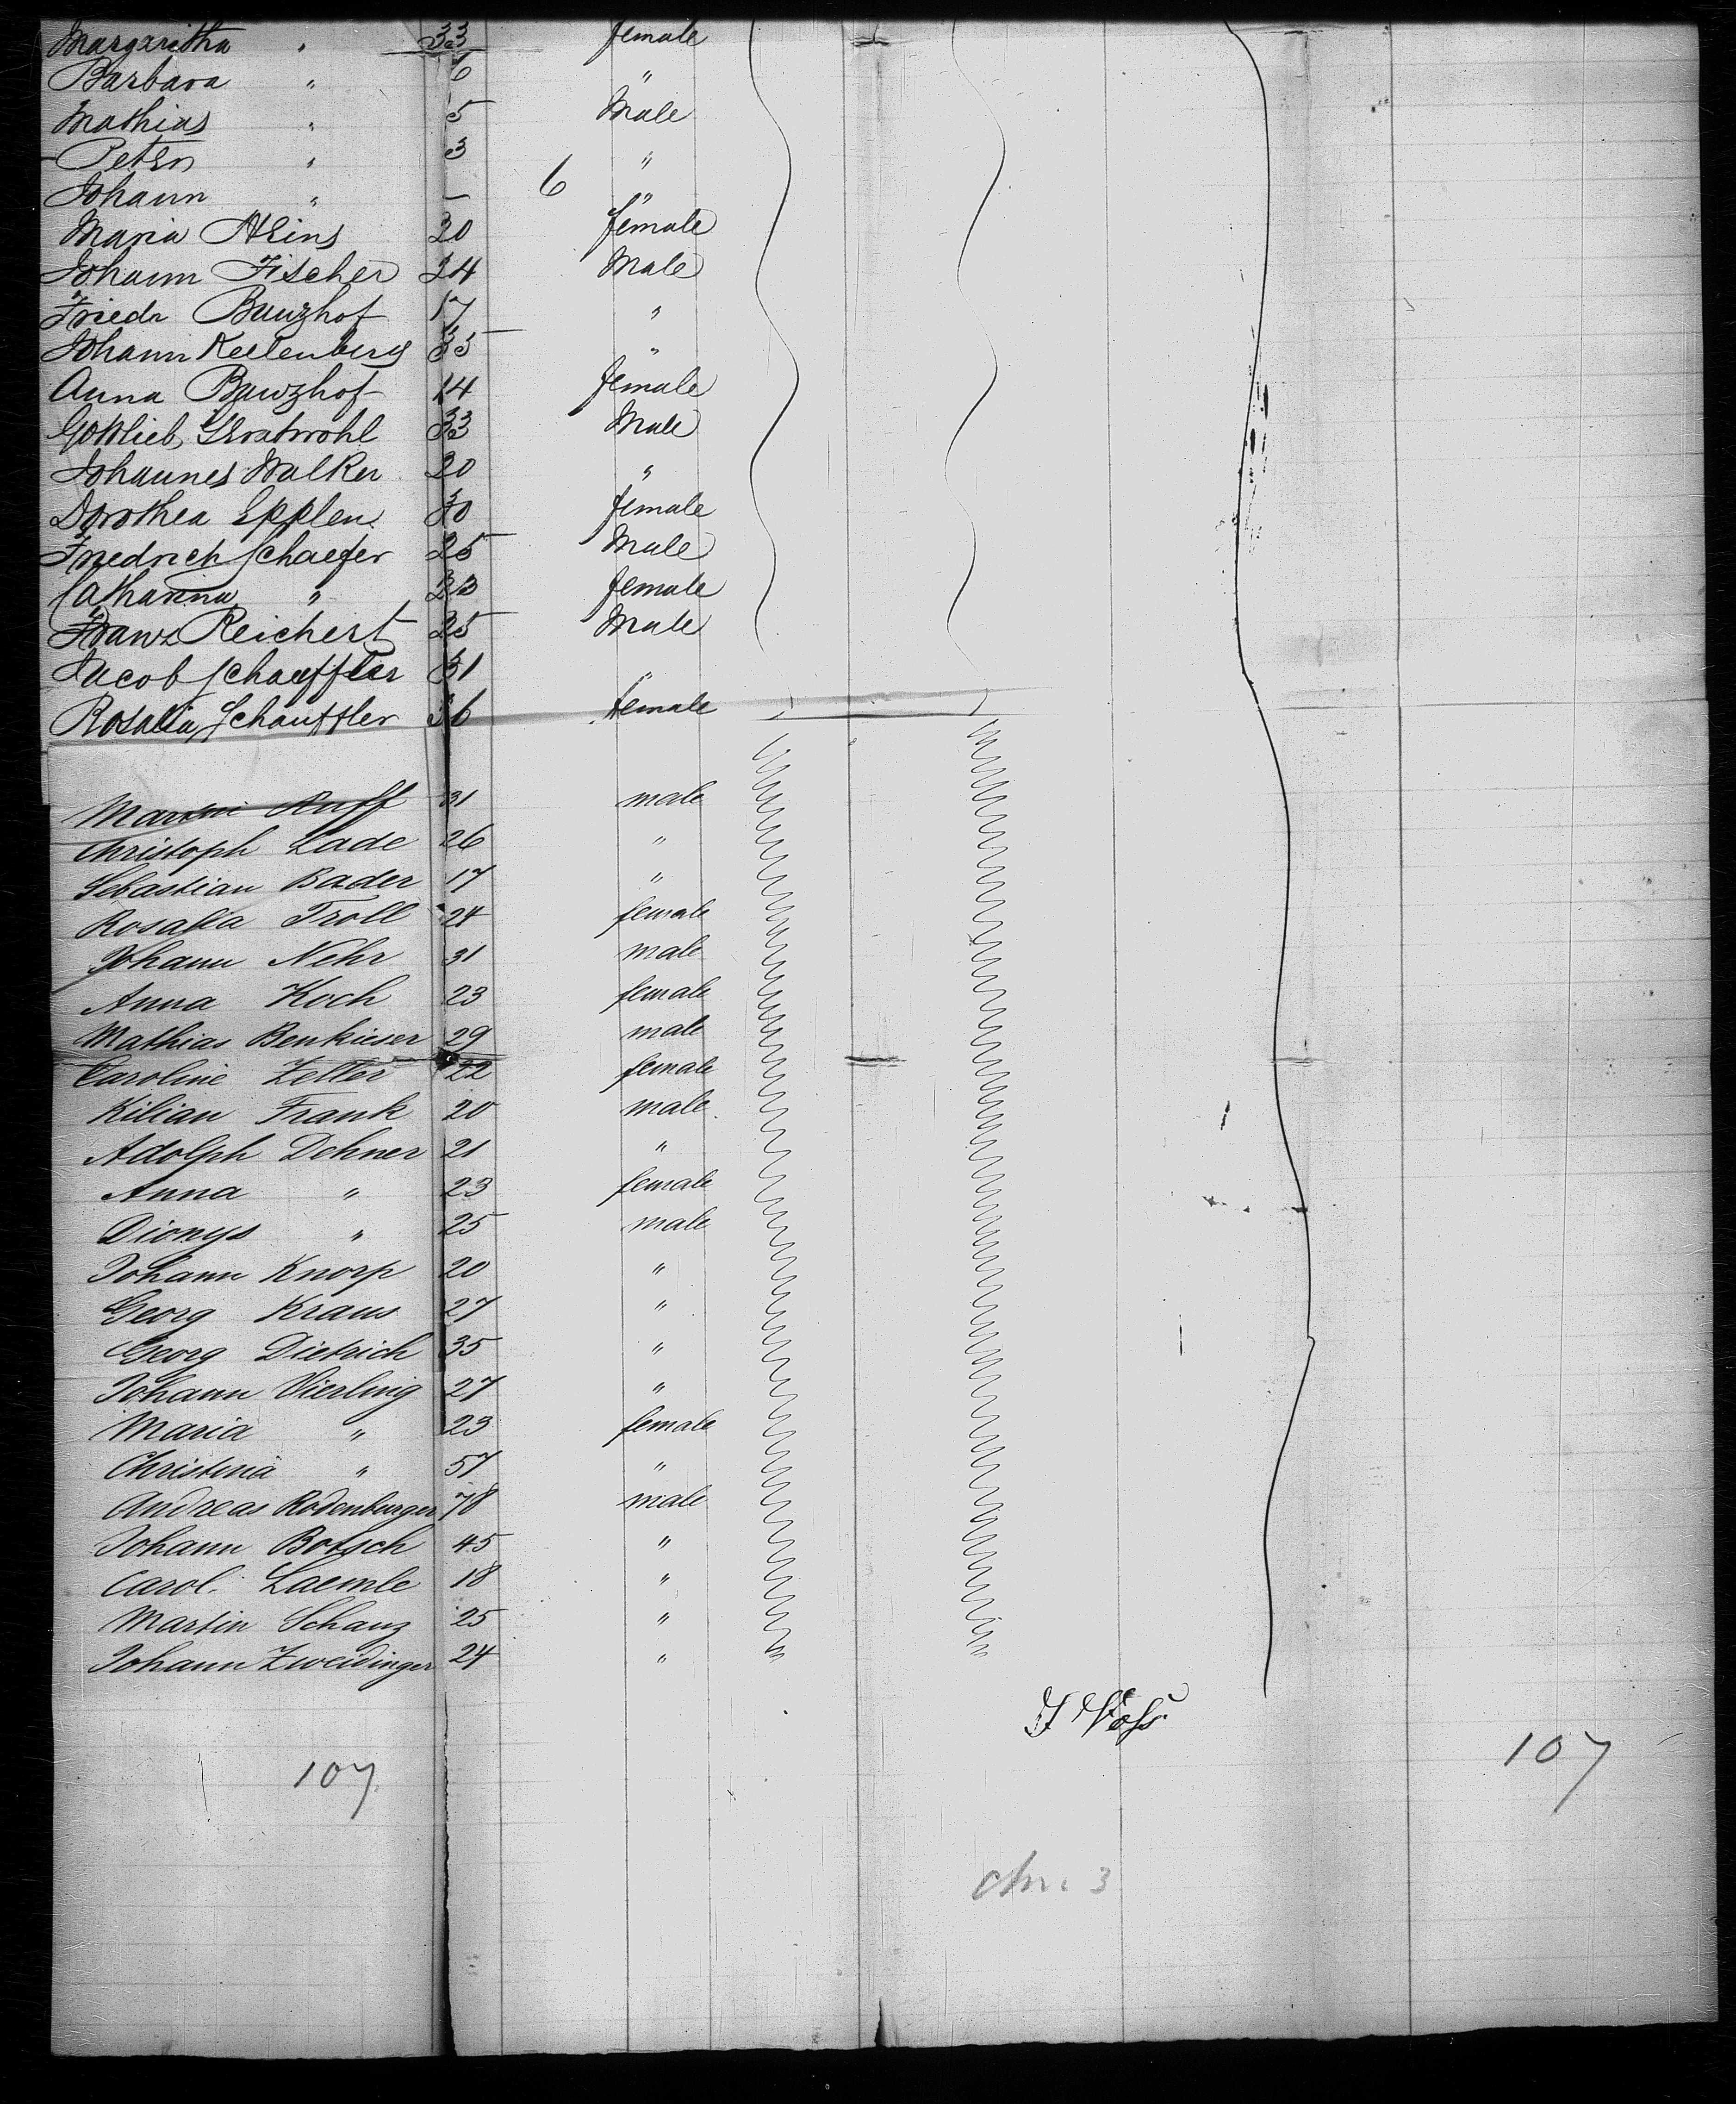 Margaritha " 33 female
Barbara " 6 "
Mathias " 5 Male
Peter " 3 "
Johann " — 6 "
Maria 20 female
Johann Fischer 24 Male
Friedr Bauzhof 17 "
Johann Kellenberg 35 "
Anna Bauzhof 14 female
Gottlieb 33 Male
Johannes Walker 20 "
Dorothea Epplen 30 female
Friedrich Schaefer 25 Male
Catharina " 23 female
Franz Reichert 25 Male
Jacob Schauffler 31 "
Rosalia Schauffler 36 female
Martin Ruff 31 male
Christoph Lade 26 "
Sebastian Bader 17 "
Rosalia Troll 24 female
Johann Nehr 31 male
Anna Koch 23 female
Mathias Benkieser 29 male
Caroline Zeller 22 female
Kilian Frank 20 male
Adolph Dehner 21 "
Anna " 23 female
Dionys " 25 male
Johann Knorp 20 "
Georg Kraus 27 "
Georg Dietrich 35 "
Johann Vierling 27 "
Maria " 23 female
Christina " 57 "
Andreas Rodenburger 78 male
Johann Botsch 45 "
Carol. Laemle 18 "
Martin Schanz 25 "
Johann Zweidinger 24 "
J Voss
107 107
3